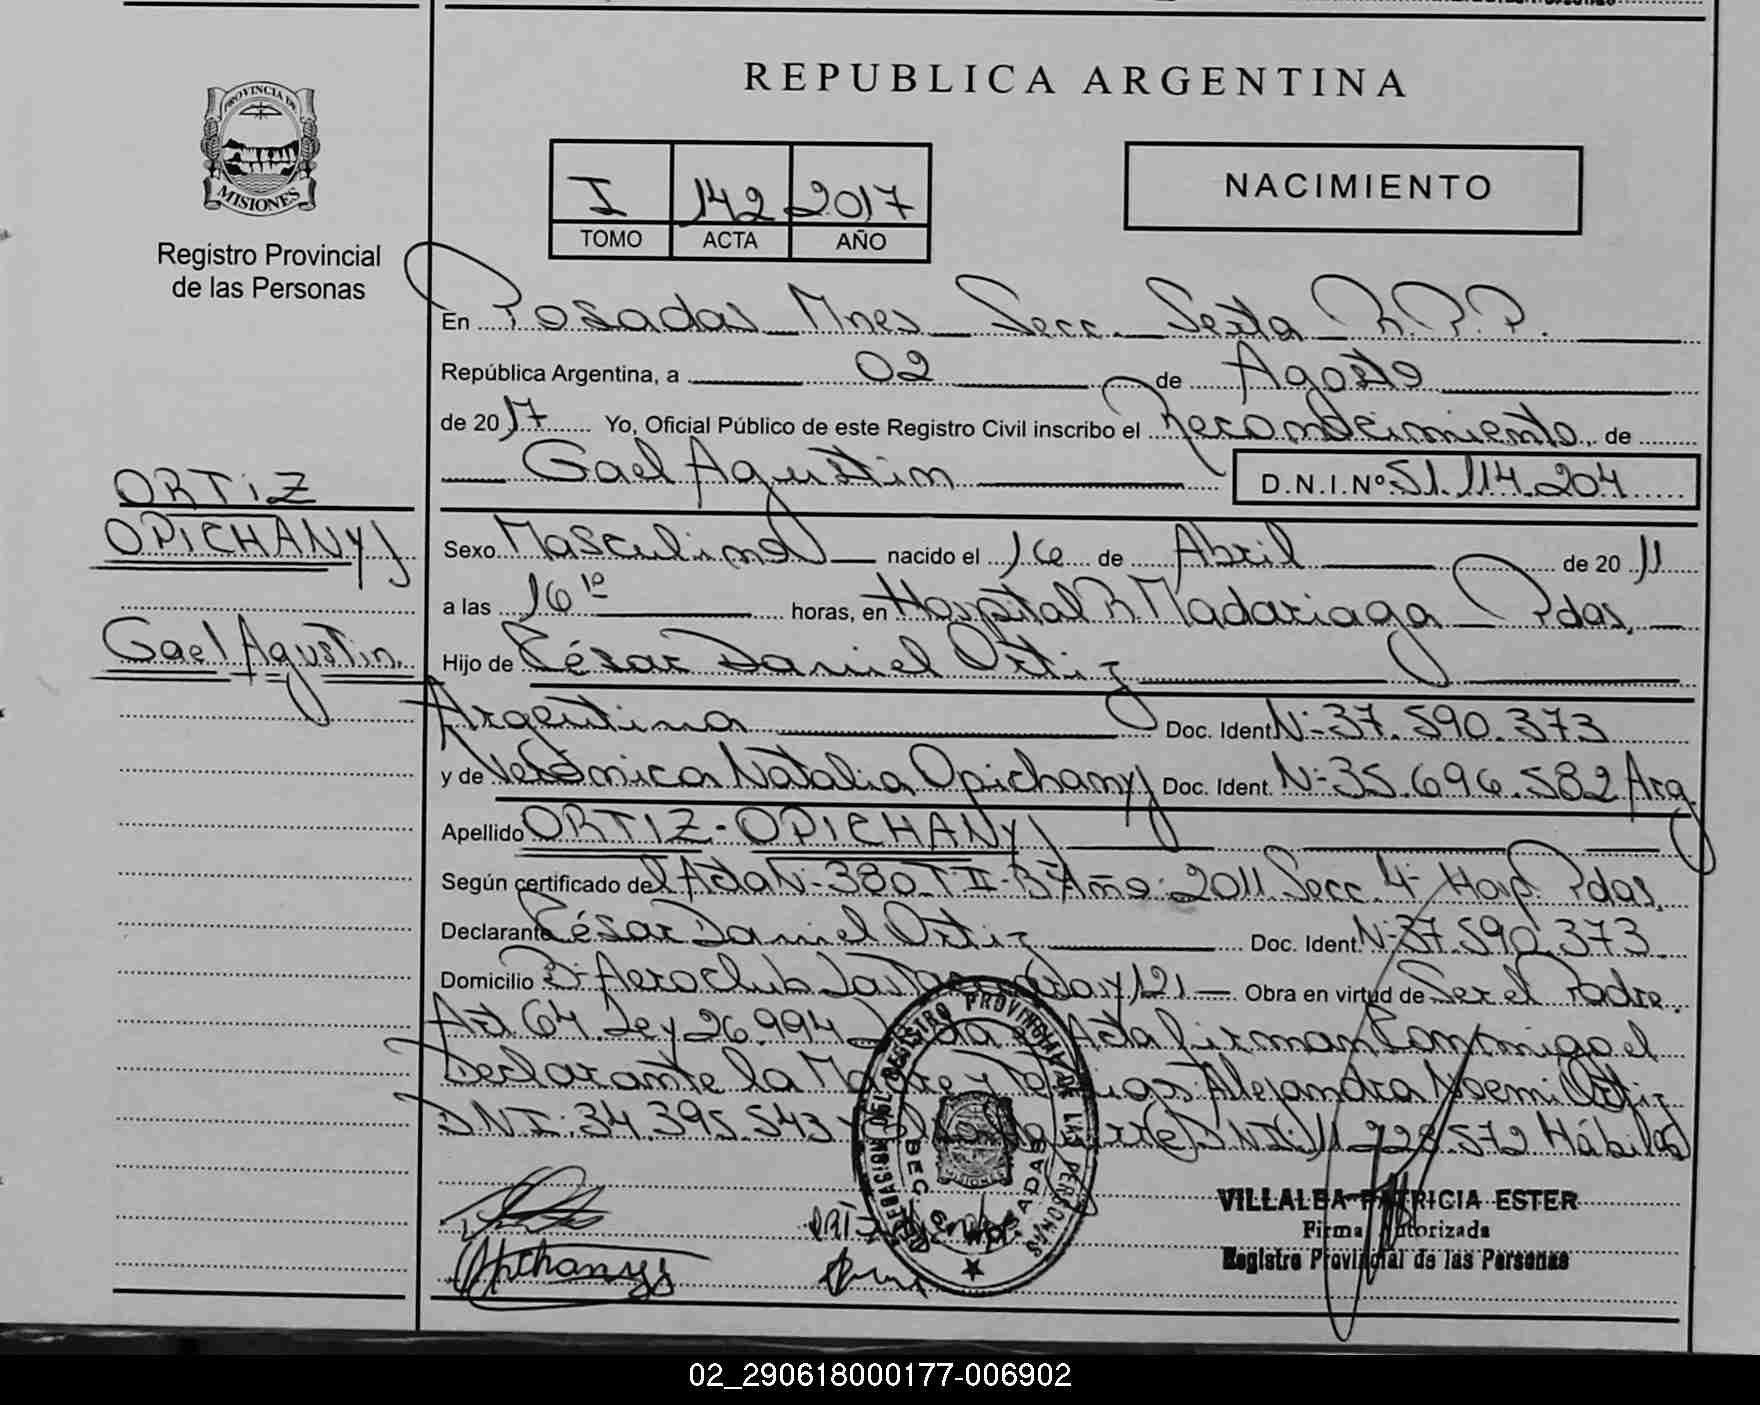 REPUBLICA ARGENTINA
PROVINCIA DE
MISIONES
Registro Provincial
de las Personas
I 142 2017
TOMO ACTA AÑO
NACIMIENTO
En Posadas Mnes Secc. Sexta R.P.P.
República Argentina, a 02 de Agosto
de 2017 Yo, Oficial Público de este Registro Civil inscribo el Reconocimiento de
Gael Agustin D.N.I.Nº 51.114.204
ORTIZ
OPICHANYJ
Gael Agustin.
Sexo Masculino nacido el 16 de Abril de 2011
a las 16 10 horas, en Hospital R Madariaga Pdas.
Hijo de César Daniel Ortiz
Argentina Doc. Ident N-37.590.373
y de Verónica Natalia Opichanyj Doc. Ident. N-35.696.582 Arg
Apellido ORTIZ-OPICHANYJ
Según certificado del Acta N-380 T II-B Año: 2011 Secc. 4- Hosp. Pdas.
Declarante César Daniel Ortiz Doc. Ident N-37.590.373
Domicilio B- Aeroclub 121 Obra en virtud de Ser el Padre.
Art. 64 Ley 26.994 Acta firman Conmigo el
Declarante la Madre y Testigos: Allejandra Noemi Ortiz
DNI: 34.395.543 y DNI: 11.928.572 Hábiles
DELEGACION DEL REGISTRO PROVINCIAL DE LAS PERSONAS
MISIONES
Opichanyj
VILLALBA PATRICIA ESTER
Firma Autorizada
Registro Provincial de las Personas
02_290618000177-006902